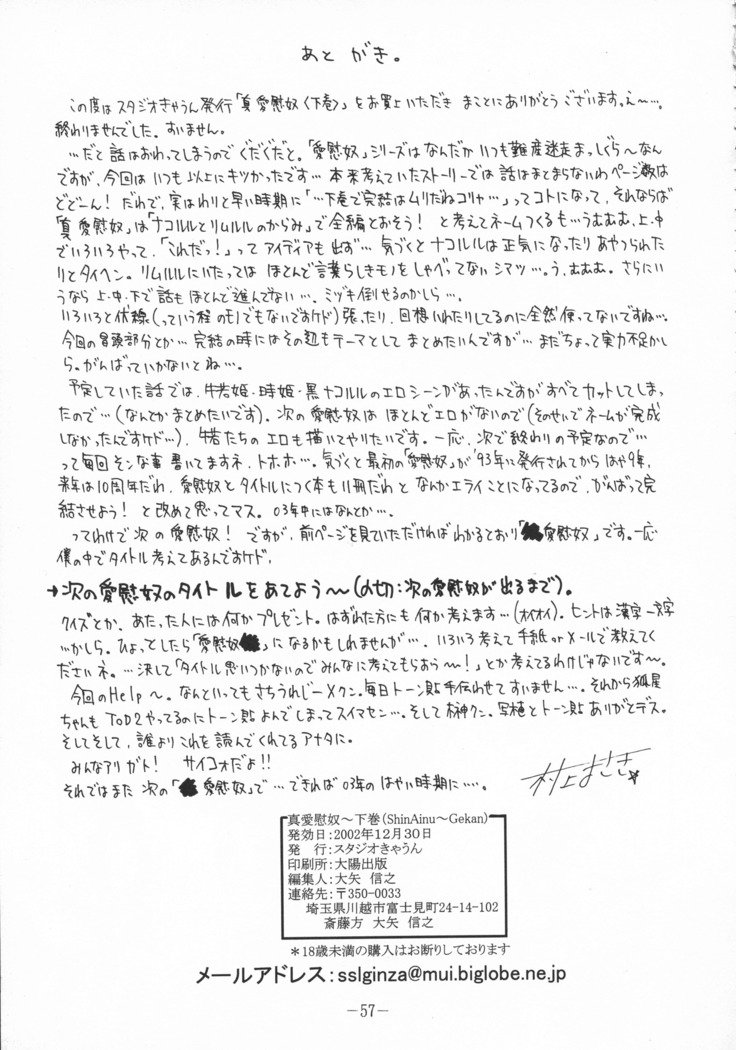 あと がき。
この度はスタジオきゃうん発行「真愛慰奴〈下巻〉」をお買上いただき まことにありがとう ございます。え〜…。
終わりませんでした。すいません。
…だと 話はおわってしまうので ぐだぐだと。「愛慰奴」シリーズはなんだか いつも難産迷走まっしぐら〜なん
ですが、今回は いつも以上にキツかったです… 本来考えていたストーリーでは 話はまとまらないわ ページ数は
どどーん! だれで、実はわりと早い時期に「…下巻で完結はムリだねコリャ…」ってコトになって、それならば
「真 愛慰奴」は「ナコルルとリムルルのからみ」で全編とおそう! と考えてネームつくるも…うむむむ、上・中
でいろいろやって、「これだっ!」って アイディアも出ず… 気づくと ナコルルは正気になったり あやつられた
りとタイヘン。リムルルにいたっては ほとんど言葉らしきモノをしゃべってない シマツ…。う、むむむ。さらにい
うなら 上・中・下で話も ほとんど進んでない…。ミヅキ倒せるのかしら…。
いろいろと伏線(っていう程のモノでもないですケド)張ったり、回想いれたりしてるのに全然使ってないですね…。
今回の冒頭部分とか… 完結の時にはその辺もテーマとして まとめたいんですが… まだちょって実力不足かし
ら。がんばっていかないとね…。
予定していた話では、牛若姫・時姫・黒ナコルルのエロシーンがあったんですがすべてカットしてしまっ
たので…(なんとかまとめたいです)。次の愛慰奴は ほとんどエロがないので(そのせいでネームが完成
しなかったんですケド…)、牛若たちの エロも描いてやりたいです。一応、次で終わりの予定なので…
って毎回そンな事 書いてますネ、トホホ…。気づくと最初の「愛慰奴」が'93年に発行されてから はや9年、
来年は10周年だわ、愛慰奴とタイトルにつく本も11冊だわ と なんかエライことになってるので、がんばって完
結させよう! と改めて思ってマス。03年中にはなんとか…。
ってわけで次の愛慰奴! ですが、前ページを見ていただければわかるとおり「愛慰奴」です。一応
僕の中でタイトル考えてあるんですケド、
→次の愛慰奴のタイトルをあてよう〜(〆切:次の愛慰奴が出るまで)。
クイズとか、あたった人には何かプレゼント。はずれた方にも 何か考えます…(オイオイ)。ヒントは漢字一文字
…かしら。ひょっとしたら「愛慰奴」になるかもしれませんが…、いろいろ考えて手紙orメールで教えてく
ださいネ。…決して「タイトル思いつかないのでみんなに考えてもらおう〜!」とか考えてるわけじゃないです〜。
今回のHelp〜。なんといってもさちうれじーXクン。毎日トーン貼手伝わせてすいません…。それから狐星
ちゃんも ToD2やってるのにトーン貼よんでしまってスイマセン…。そして榊クン。写植とトーン貼ありがとデス。
そしてそして、誰よりこれを読んでくれてるアナタに。
みんなアリガト! サイコオだよ!!
それではまた 次の「愛慰奴」で…できれば03年のはやい時期に…‥。
村上まさき
真愛慰奴〜下巻(ShinAinu〜Gekan)
発効日:2002年12月30日
発 行:スタジオきゃうん
印刷所:大陽出版
編集人:大矢 信之
連絡先:〒350-0033
埼玉県川越市富士見町24-14-102
斎藤方 大矢 信之
*18歳未満の購入はお断りしております
メールアドレス:sslginza@mui.biglobe.ne.jp
-57-